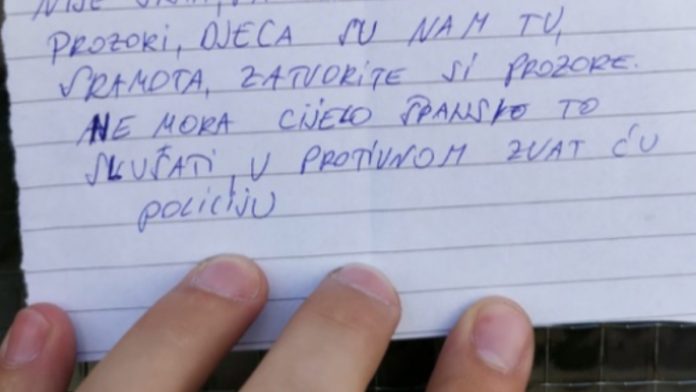 PROZORI, DJECA SU NAM TU,
SRAMOTA, ZATVORITE SI PROZORE.
NE MORA CIJELO ŠPANSKO TO
SLUŠATI, U PROTIVNOM ZVAT ĆU
POLICIJU